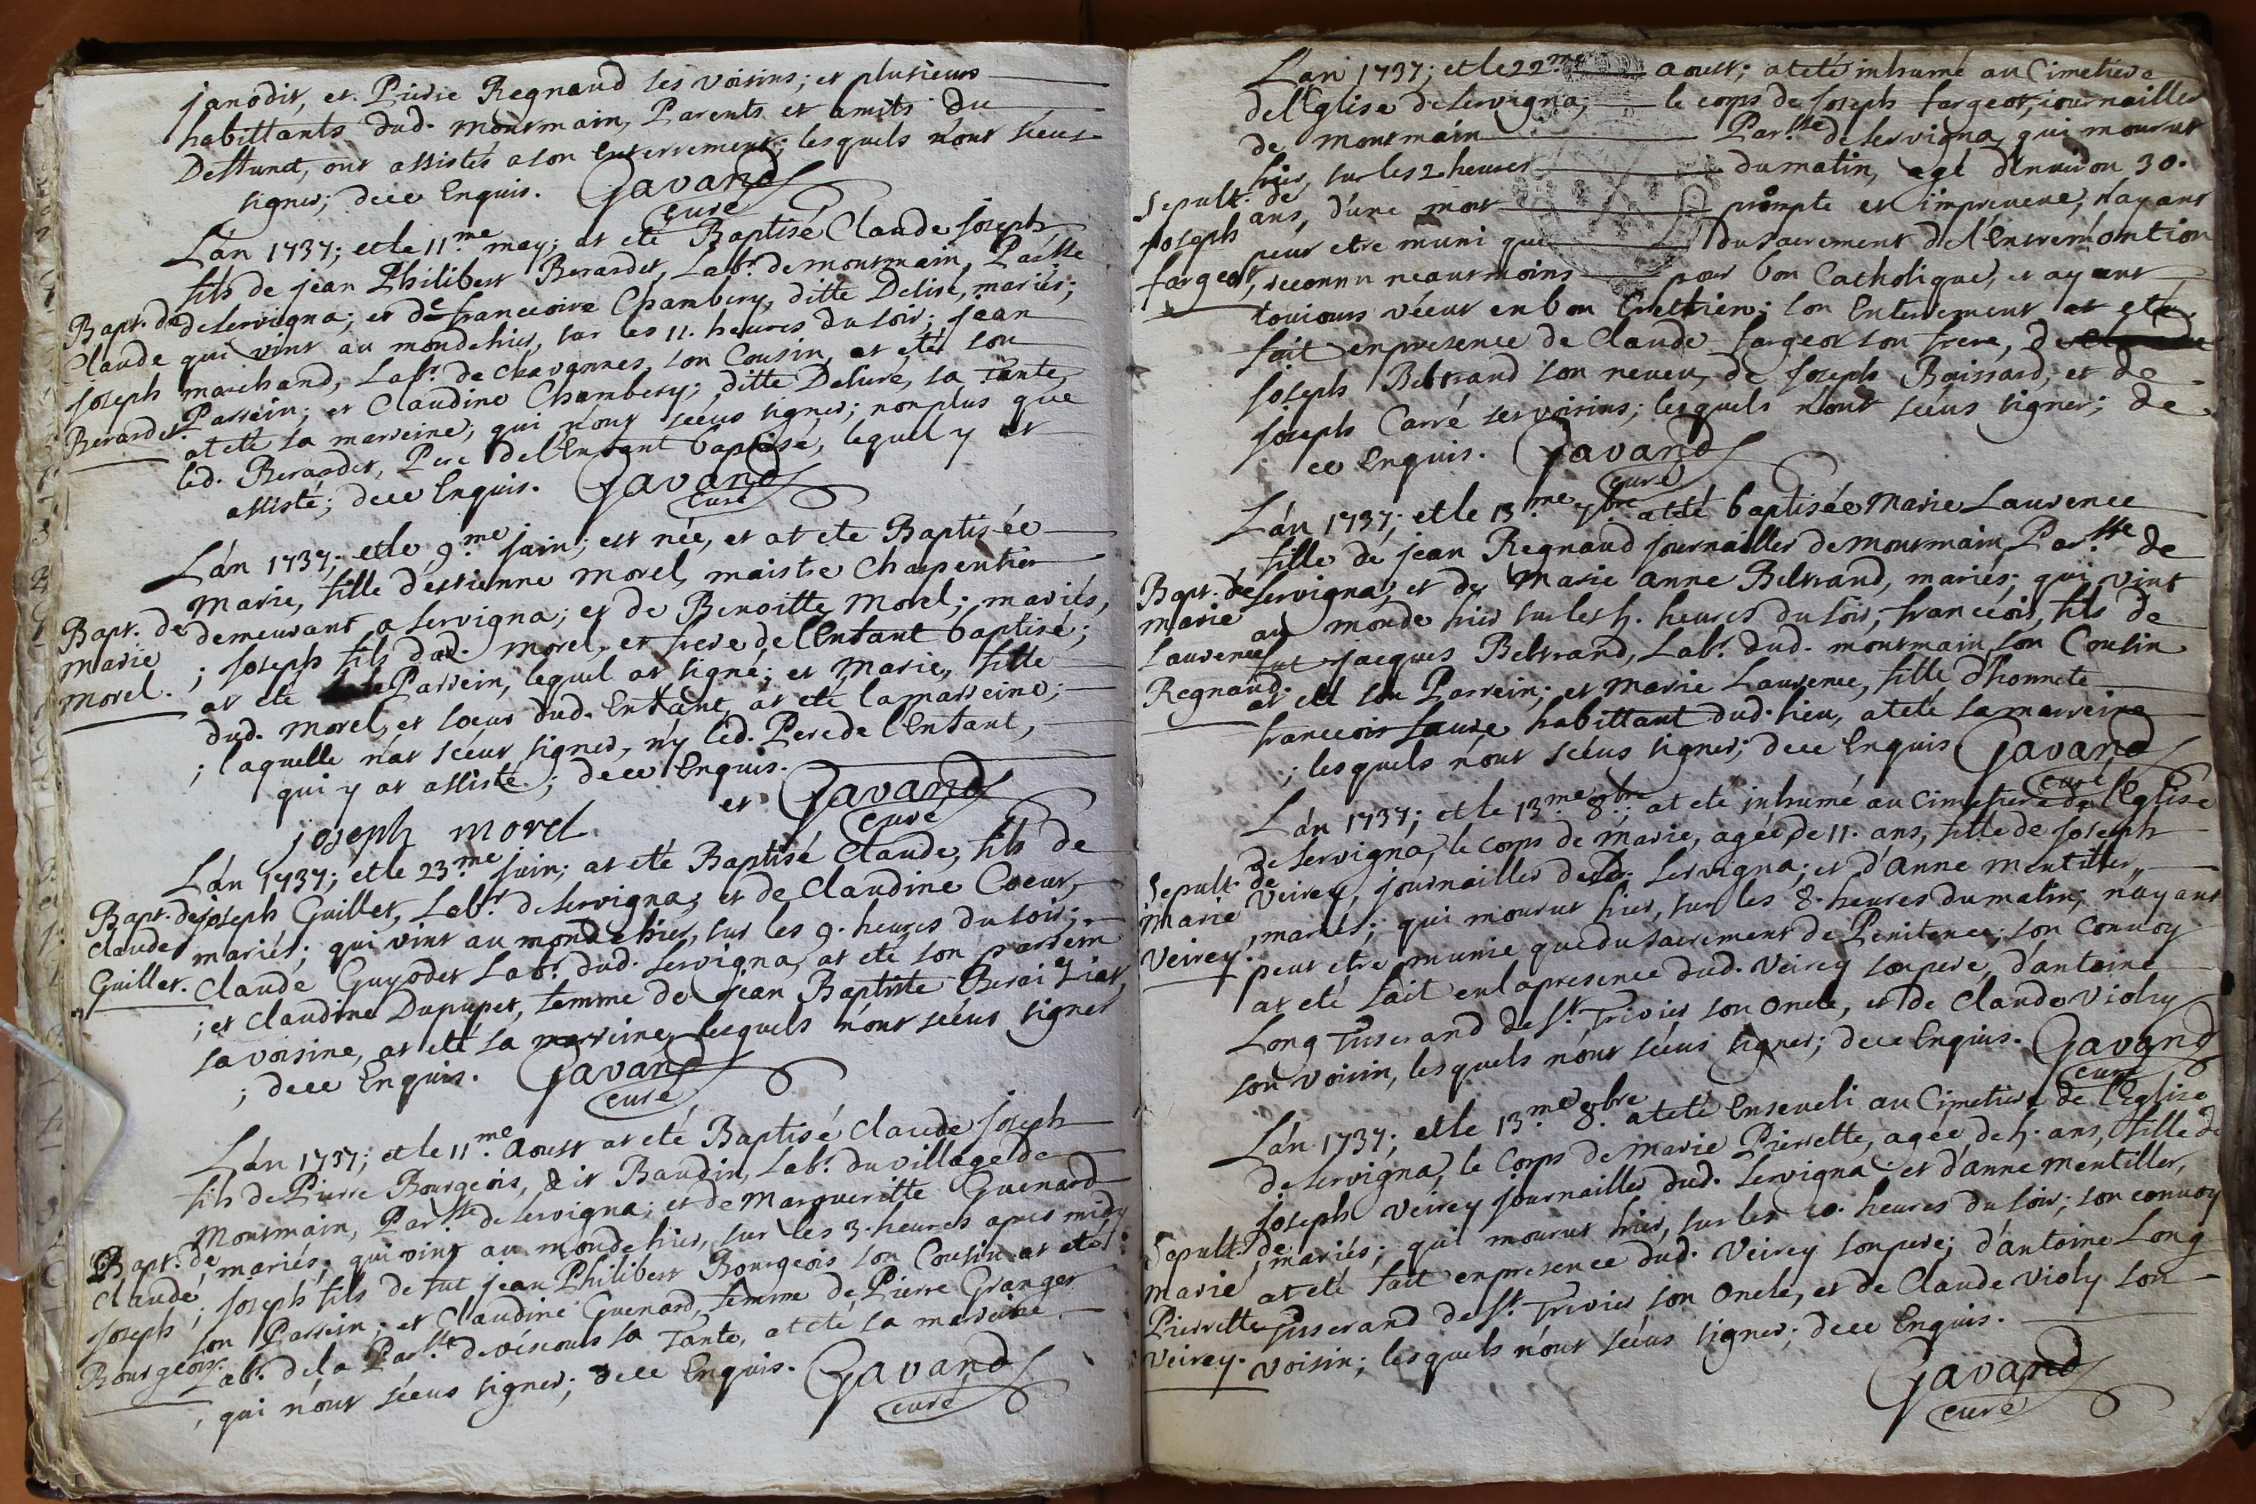 janodit, et Pierre Regnaud ses voisins; et plusieurs
habittants dud. montmain, Parents et amits du
Deffunct, ont assistés a son Enterrement; lesquels n'ont sceus
signer; de ce Enquis. Gavand
curé
L'an 1737; et le 11.me may; at eté Baptisé Claude joseph
fils de jean Philibert Berardet, Labr. de montmain, Par.sse
Bapt. de
de servigna; et de francoise Chambery, ditte Delise, mariés;
Claude
qui vint au monde hier, sur les 11. heures du soir; jean
joseph
marchand, Labr. de chavannes, son Cousin, at eté son
Berardet.
Parrein; et Claudine Chambery; ditte Delure, sa Tante,
at eté sa marreine, qui n'ont scéus signer; non plus que
led. Berardet, Pere de l'Enfant baptisé, lequel y at
assisté; de ce Enquis. Gavand
Curé
L'an 1737; et le 9.me juin; est née, et at eté Baptisée
Marie, fille d'estienne morel, maistre Charpentier
Bapt. de
demeurant a servigna; et de Benoitte Morel; mariés,
marie
; joseph fils dud. morel, et frere de l'Enfant baptisé;
morel.
at eté Parrein, lequel at signé; et Marie, fille
dud. morel, et soeur dud. Enfant, at eté la marreine;
; laquelle n'at scéut signer, n'y led. Pere de l'Enfant,
qui y at assisté; de ce Enquis.
joseph morel et Gavand
curé
L'an 1737; et le 23.me juin; at eté Baptisé Claude, fils de
Bapt. de
joseph Guillet, Labr. de servigna; et de Claudine Coeur,
claude
mariés; qui vint au monde hier, sur les 9. heures du soir;
Guillet.
Claude Guyodet Labr. dud. servigna, at eté son parrein
; et Claudine Dupupet, femme de jean Baptiste
sa voisine, at eté sa marreine, lesquels n'ont scéus signer
; de ce Enquis. Gavand
curé
L'an 1737; et le 11.me Aoust at eté Baptisé claude joseph
fils de Pierre Bourgeois, dit Baudin, Labr. du village de
Montmain, Par.sse de servigna; et de Margueritte Guenard
Bapt. de
mariés; qui vint au monde hier, sur les 3. heures apres midy
claude
; joseph fils de fut jean Philibert Bourgeois son Cousin at eté
joseph
son Parrein; et Claudine Guenard, femme de Pierre Granger
Bourgeois.
Labr. de la Par.sse de véscours sa Tante, at eté sa marreine
; qui n'ont scéus signer; de ce Enquis. Gavand
curé
L'an 1737; et le 22.me aoust; at eté inhumé au Cimetiere
de l'Eglise de servigna; le corps de joseph fargeot, journailler
de montmain Par.sse de servigna, qui mourut
hier, sur les 2 heures du matin, agé d'environ 30.
Sepult. de
ans, d'une mort prompte et impreveue; n'ayant
joseph
peut etre muni que du sacrement de l'Extremontion
fargeot,
reconnu neantmoins pour bon Catholique, et ayant
toujours véeut en bon Chettien; son Enterrement at eté
fait en presence de Claude fargeot son frere, de
joseph Beltrand son neveu, de joseph Boissard, et de
joseph Carré ses voisins; lesquels n'ont scéus signer; de
ce Enquis. Gavand
curé
L'an 1737; et le 13.me 7.bre at eté baptisée Marie Laurence
fille de jean Regnaud journailler de montmain Par.sse de
Bapt. de
servigna; et de Marie anne Beltrand, mariés; qui vint
marie
au monde hier sur les h. heures du soir, francois, fils de
Laurence
fut jacques Beltrand, Labr. dud. montmain son Cousin
Regnaud.
at eté son Parrein; et marie Laurence, fille d'honnete
francois habittant dud. lieu, at eté sa marreine
; lesquels n'ont scéus signer; de ce Enquis Gavand
curé
L'an 1737; et le 13.me 8.bre; at eté inhumé au Cimetiere de l'Eglise
de servigna, le corps de marie, agée de 11. ans, fille de joseph
Sepult. de
Veirey, journailler dud. servigna; et d'anne mentiller,
marie
, mariés; qui mourut hier, sur les 8. heures du matin; n'ayant
Veirey.
peut etre munie que du sacrement de Penitence; son Convoy
at eté fait en la presence dud. Veirey son pere, d'antoine
Long Tisserand de st. Trivier son Oncle, et de Claude Violy
son voisin, lesquels n'ont scéus signer; de ce Enquis. Gavand
curé
L'an 1737; et le 13.me 8.bre at eté Enseveli au Cimetiere de l'Eglise
de servigna, le Corps de marie Pierrette, agée de h. ans, fille de
joseph Veirey journailler dud. servigna; et d'anne mentiller,
Sepult. de
; mariés; qui mourut hier, sur les 10. heures du soir; son convoy
marie
at eté fait en presence dud. Veirey son pere; d'antoine Long
Pierrette
Tisserand de st. Trivier son Oncle, et de Claude Violy son
Veirey.
voisin; lesquels n'ont scéus signer; de ce Enquis.
Gavand
curé